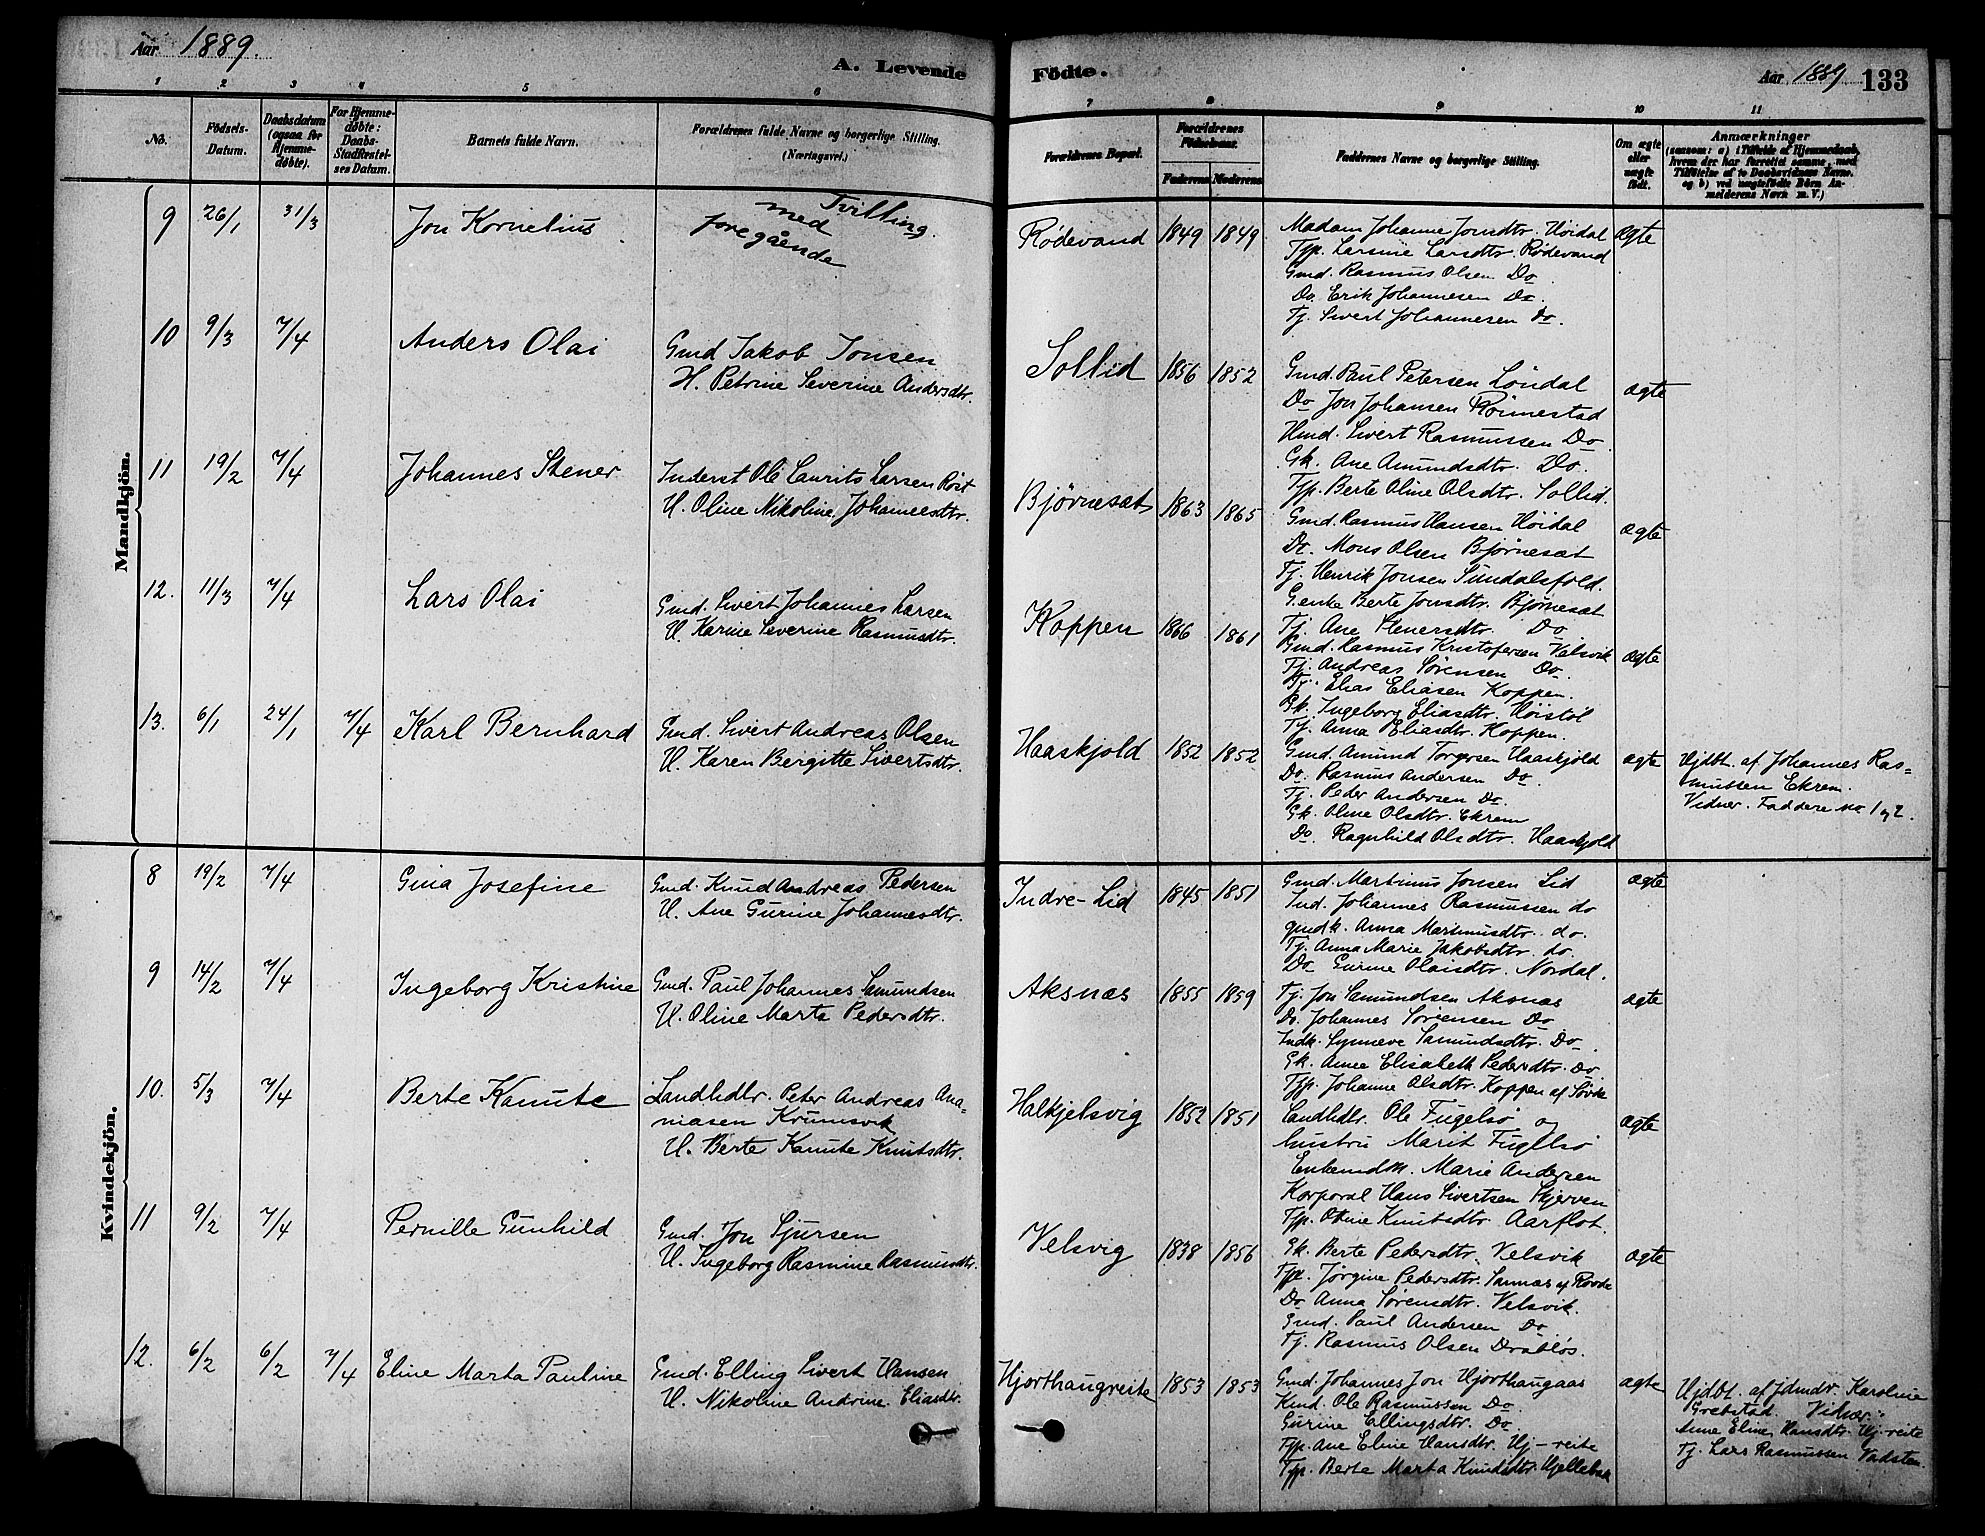 Aar 1889.
A. Levende
Födte.
Aar 1889 133
1 2 3 4 5 6 7 8 9 10 11
No.
Födsels-Datum.
Daabsdatum (ogsaa for Hjemme-döbte).
For Hjemme-döbte: Daabs-Stadfæstel-ses Datum.
Barnets fulde Navn.
Forældrenes fulde Navne og borgerlige Stilling. (Næringsvei.)
Forældrenes Bopæl.
Forældrenes Födselsaar.
Faderens Moderens
Faddernes Navne og borgerlige Stilling.
Om ægte eller uægte födt.
Anmærkninger
(saasom: a) i Tilfælde af Hjemmedaab,
hvem der har forrettet samme, med
Tilföielse af to Daabsvidners Navne,
og b) ved uægtefödte Börn An-
melderens Navn m. V.)
Mandkjön.
9 26/1 31/3 Jon Kornelius
Tvilling
med
foregående.
Rødevand 1849 1849
Madam Johanne Jonsdtr. Høidal ægte
Tjp. Larsine Larsdtr. Rødevand
Gmd. Rasmus Olsen Do
Do. Erik Johannesen Do.
Tj. Sivert Johannesen Do.
10 9/3 7/4 Anders Olai
Gmd Jakob Jonsen
H. Petrine Severine Andersdtr.
Sollid 1856 1852
Gmd. Paul Petersen Löndal
Do Jon Johansen Rönnestad ægte
Hmd. Sivert Rasmussen Do
Gk. Ane Amundsdtr. Do.
Tjp. Berte Oline Olsdtr. Sollid.
11 19/2 7/4 Johannes Stener
Inderst Ole Laurits Larsen Röst
H. Oline Nikoline Johannesdtr.
Bjørnesæt 1863 1865
Gmd. Rasmus Hansen Höidal
Do. Mons Olsen Bjørnesæt ægte
Tj. Henrik Jonsen Sundalsfold.
G.enke Berte Jonsdtr. Bjørnesæt
Tj. Ane Stenersdtr. Do
12. 11/3 7/4 Lars Olai
Gmd. Sivert Johannes Larsen
H. Karine Severine Rasmusdtr.
Koppen 1866 1861
Gmd. Rasmus Kristofersen Velsvik ægte
Tj. Andreas Sörensen Do.
Tj. Elias Eliasen Koppen.
Gk. Ingeborg Eliasdtr. Höistöl
Tj. Anna Eliasdtr. Koppen.
13. 6/1 24/1 7/4 Karl Bernhard
Gmd. Sivert Andreas Olsen
H. Karen Bergitte Sivertsdtr.
Haaskjold 1852 1852
Gmd. Amund Torgersen Haaskjold ægte
Do. Rasmus Andersen Do
Tj. Peder Andersen Do.
Gk. Oline Olsdtr. Ekrem
Do. Ragnhild Olsdtr. Haaskjold
Hjdbt. af Johannes Ras-
mussen Ekrem.
Vidner. Faddere no 1 og 2.
Kvindekjön.
8 19/2 7/4 Gina Josefine
Gmd. Knud Andreas Pedersen
H. Ane Gurine Johannesdtr.
Indre-Lid 1845 1851
Gmd. Martinus Jonsen Lid ægte
Ind. Johannes Rasmussen do
gmdk. Anna Martinusdtr. do.
Tj. Anna Marie Jakobsdtr. do
Do Gurine Olaisdtr. Nordal.
9 14/2 7/4 Ingeborg Kristine
Gmd. Paul Johannes Samundsen
H. Oline Marta Pedersdtr.
Aksnæs 1855 1859
Tj. Jon Samundsen Aksnæs ægte
Do. Johannes Sörensen Do
Indk. Synneve Samundsdtr. Do
Gk. Anne Elisabeth Pedersdtr. Do
Tjp. Johanne Olsdtr. Koppen af Søvde
10. 5/3 7/4 Berte Kanute
Landhdlr. Peter Andreas Ana-
niasen Krumsvik
H. Berte Kanute Knutsdtr.
Halkjelsvig 1852 1851
Landhdlr. Ole Fugelsö og ægte
hustru Marit Fugelsö
Enkemdm. Marie Andersen
Korporal Hans Sivertsen Skjerven
Tjp. Oline Knutsdtr. Aarflot.
11 9/2 7/4 Pernille Gunhild
Gmd. Jon Sjursen
H. Ingeborg Rasmine Rasmusdtr.
Velsvig 1838 1856
Gk. Berte Pedersdtr. Velsvik ægte
Tjp. Jørgine Pedersdtr. Sannæs af Rovde
Do Anna Sørensdtr. Velsvik.
Gmd. Paul Andersen Do
Tj. Rasmus Olsen Dråbløs.
12. 6/2 6/2 7/4 Eline Marta Pauline
Gmd. Elling Sivert Hansen
H. Nikoline Andrine Eliasdtr.
Hjorthaugreite 1853 1853
Gmd. Johannes Jon Hjorthaugaas ægte
Kmd. Ole Rasmussen Do.
Gurine Ellingsdtr. Do
Tjp. Ane Eline Hansdtr. Hj-reite
Tjp. Berte Marta Knudsdtr. Hjellebak
Hjdbt. af Jdmdr. Karoline
Grebstad. Vidner:
Anne Eline Hansdtr. Hj-reite
Tj. Lars Rasmussen Vadsten